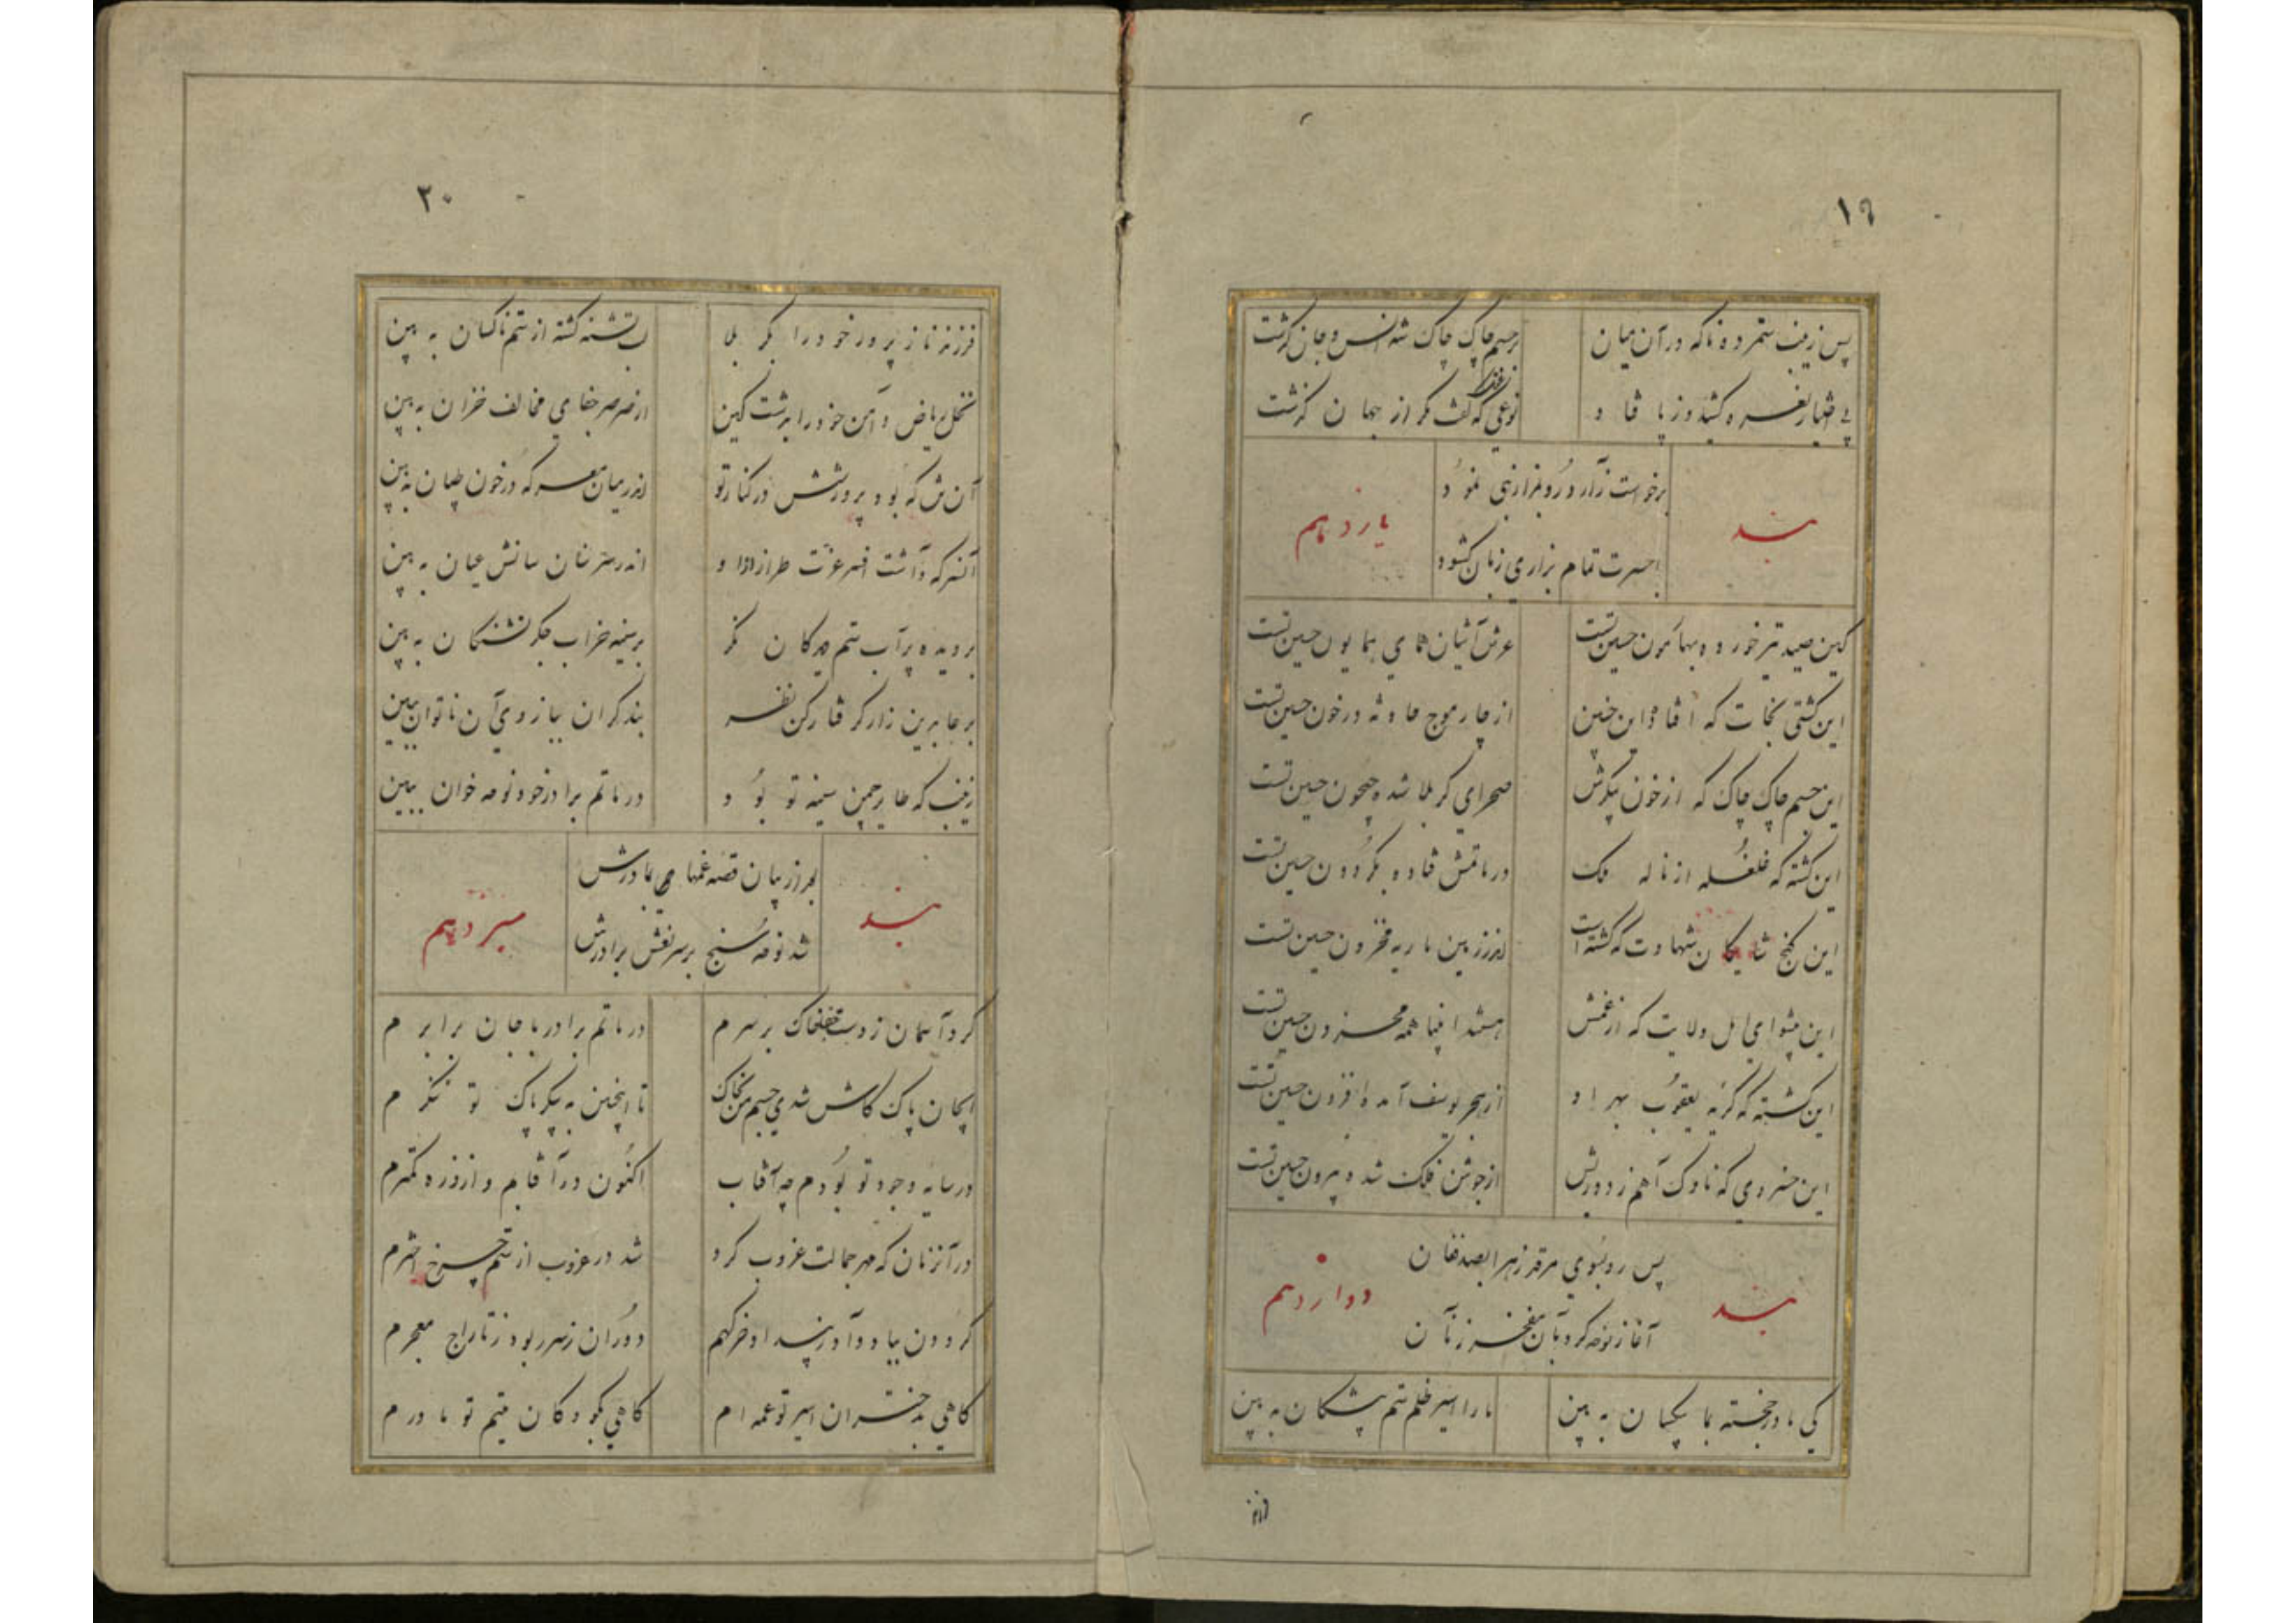 ۱۹
پس زینب ستمزده ناکه در آن میان
بر جسم چاک چاک شه انس و جان گذشت
بی اختیار نعره کشید و ز پا فتاد
نوعی که گفت مگر از جهان گذشت
بند
برخواست زار و رو بمزار نبی نمود
با حسرت تمام بزاری زبان گشود
یازدهم
کین صید تیر خورده بهامون حسین تست
عرش آشیان همای همایون حسین تست
این کشتی نجات که افتاده این چنین
از چار موج حادثه در خون حسین تست
این جسم چاک چاک که از خون پیکرش
صحرای کربلا شده جیحون حسین تست
این کشته که غلغله از ناله ملک
در ماتمش فتاده بگردون حسین تست
این گنج شایکان شهادت که گشته است
اندر زمین ماریه مخزون حسین تست
این پیشوای اهل ولایت که از غمش
باشند انبیا همه محزون حسین تست
این کشته که گریه یعقوب بهر او
از هجر یوسف آمده افزون حسین تست
این خسروی که ناوک آهم ز دوریش
از جوشن فلک شده بیرون حسین تست
بند
پس رو بسوی مرقد زهرا بصد فغان
آغاز نوحه کرد بآن مفخر زنان
دوازدهم
کی مادر خجسته بما بیکسان به بین
ما را اسیر ظلم ستم پیشکان به بین
فرزند
۲۰
فرزند ناز پرور خود را بکربلا
لب تشنه کشته از ستم ناکسان به بین
نخل ریاض دامن خود را بدشت کین
از صرصر جفای مخالف خزان به بین
آن تن که بود پرورشش در کنار تو
اندر میان معرکه در خون طپان به بین
آنسر که داشت افسر عزت طراز او
اندر سر سنان سنانش عیان به بین
بر دیده پر آب ستم دیدکان نگر
بر سینه خراب جگر تشنکان به بین
بر عابدین زار گرفتار کن نظر
بند گران ببازوی آن ناتوان ببین
زینب که طایر چمن سینه تو بود
در ماتم برادر خود نوحه خوان ببین
بند
بعد از بیان قصه غمها بمادرش
شد نوحه سنج بر سر نعش برادرش
سیزدهم
کرد آسمان ز دست جفا خاک بر سرم
در ماتم برادر با جان برابرم
ایجان پاک کاش شدی جسم من بخاک
تا اینچنین به پیکر پاک تو ننگرم
در سایه وجود تو بودم چه آفتاب
اکنون در آفتابم و از ذره کمترم
در آنزمان که مهر جمالت غروب کرد
شد در غروب از ستم چرخ اخترم
گردون بباد داد ز بیداد خرگهم
دوران ز سر ربود ز تاراج معجرم
گاهی بدختران اسیر تو عمه ام
گاهی بکودکان یتیم تو مادرم